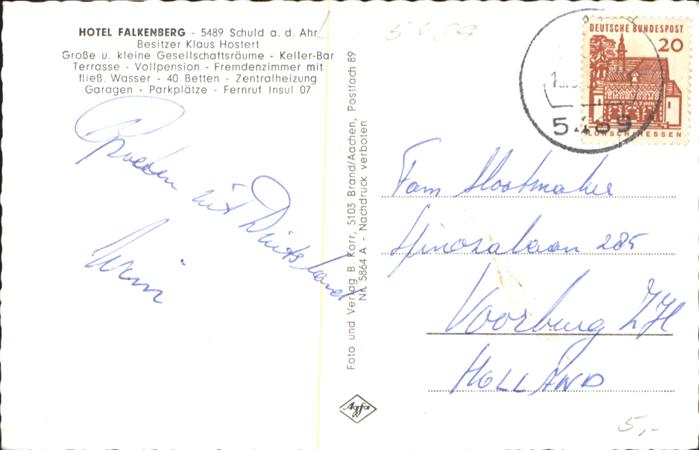 HOTEL FALKENBERG - 5489 Schuld a. d. Ahr
Besitzer Klaus Hostert
Große u. kleine Gesellschaftsräume - Keller-Bar
Terrasse - Vollpension - Fremdenzimmer mit
fließ. Wasser - 40 Betten - Zentralheizung
Garagen - Parkplätze - Fernruf Insul 07
Groeten uit Duitsland
Wim
Foto und Verlag B. Korr, 5103 Brand/Aachen, Postfach 89
Nr. 5864 A - Nachdruck verboten
Agfa
DEUTSCHE BUNDESPOST
20
LORSCH/HESSEN
5489
Fam Slootmaker
Spinozalaan 285
Voorburg ZH
HOLLAND
5,-